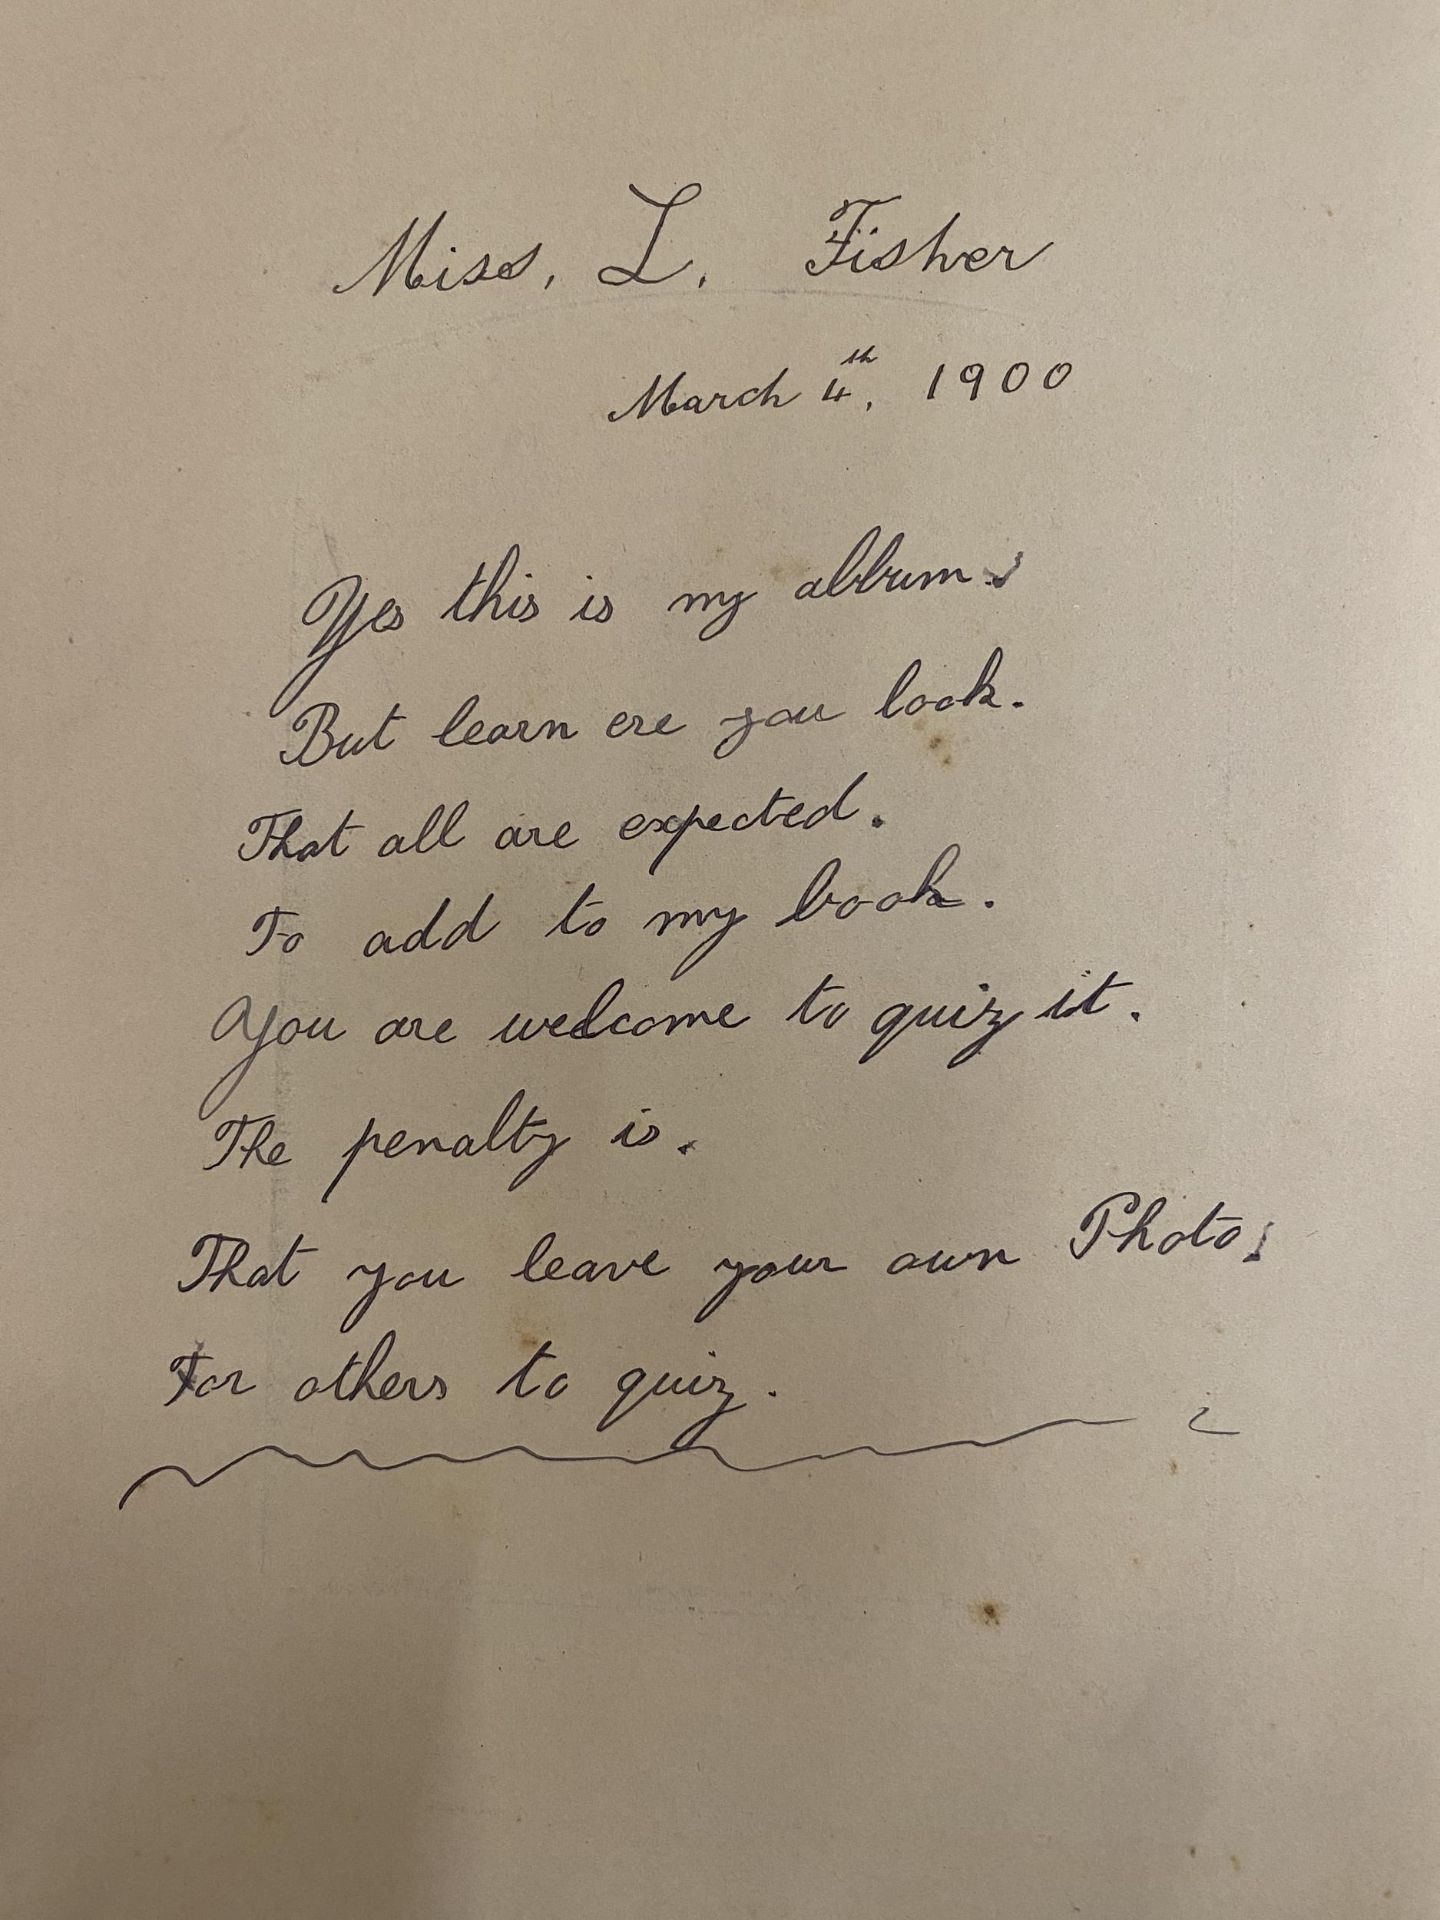 Miss, L. Fisher
March 4th, 1900
Yes this is my album.
But learn ere you look.
That all are expected.
To add to my book.
You are welcome to quiz it.
The penalty is.
That you leave your own Photo,
For others to quiz.